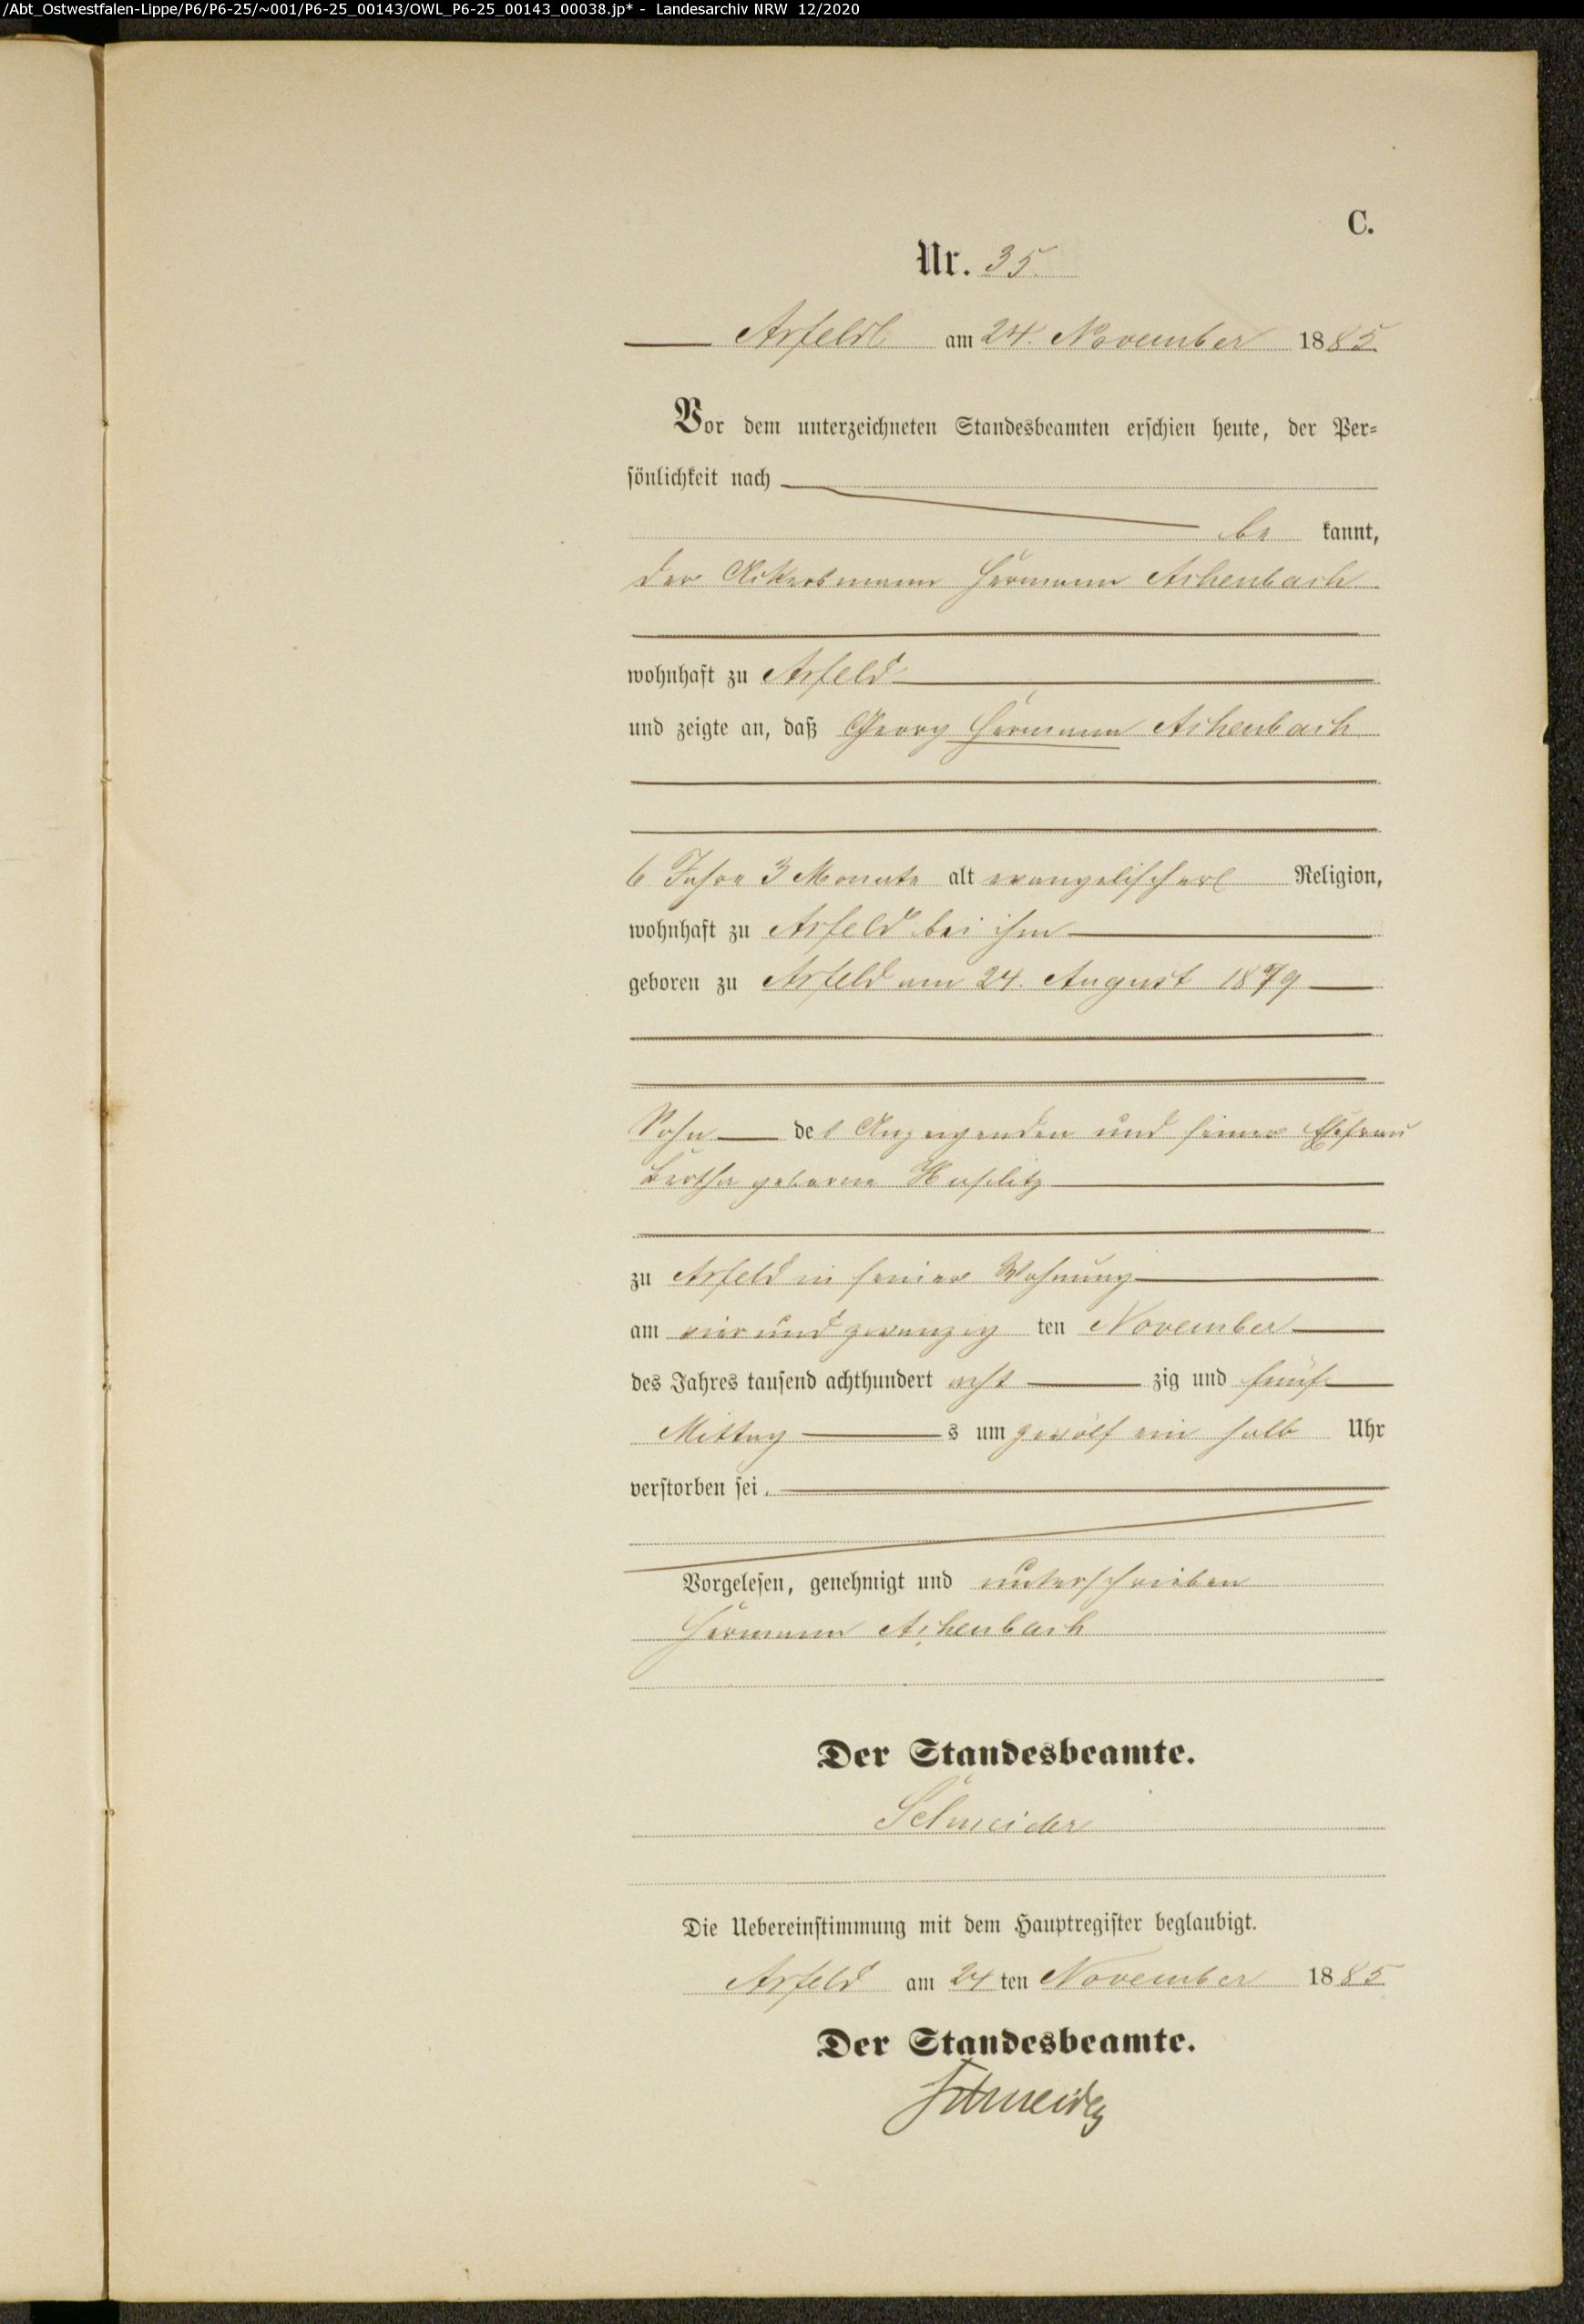 /Abt_Ostwestfalen-Lippe/P6/P6-25/~001/P6-25_00143/OWL_P6-25_00143_00038.jp* - Landesarchiv NRW 12/2020
C.
Nr. 35.
Arfeld am 24. November 1885
Vor dem unterzeichneten Standesbeamten erschien heute, der Per-
sönlichkeit nach
be kannt,
der Ackersmann Hermann Achenbach
wohnhaft zu Arfeld
und zeigte an, daß Georg Hermann Achenbach
6 Jahre 3 Monate alt evangelischer Religion,
wohnhaft zu Arfeld bei ihm
geboren zu Arfeld am 24. August 1879
Sohn des Anzeigenden und seiner Ehefrau
Bertha geborne
zu Arfeld in seiner Wohnung
am vier und zwanzig ten November
des Jahres tausend achthundert acht zig und fünf
Mittag s um zwölf ein halb Uhr
verstorben sei.
Vorgelesen, genehmigt und unterschrieben
Hermann Achenbach
Der Standesbeamte.
Schneider
Die Uebereinstimmung mit dem Hauptregister beglaubigt.
Arfeld am 24 ten November 1885
Der Standesbeamte.
Schneider